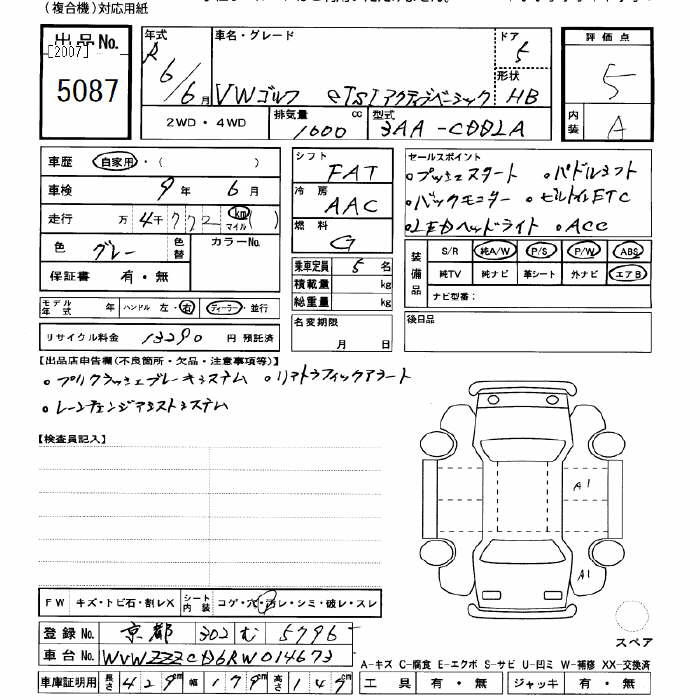 (複合機)対応用紙
出品No.
[2007]
5087
年式 R6/6月
車名・グレード VWゴルフ eTSIアクティブベーシック
ドア 5
形状 HB
評価点 5
内装 A
2WD・4WD
排気量 1000 cc
型式 3AA-CDDLA
車歴 自家用・( )
車検 9年 6月
走行 万4千772 km マイル ( )
色 グレー 色替 カラーNo.
保証書 有・無
モデル年式 年 ハンドル 左・右 ディーラー・並行
リサイクル料金 13290 円 預託済
シフト FAT
冷房 AAC
燃料 G
乗車定員 5名
積載量 kg
総重量 kg
名変期限 月 日
セールスポイント
。プッシュスタート 。パドルシフト
。バックモニター 。ビルトインETC
。LEDヘッドライト 。ACC
装備品
S/R 純A/W P/S P/W ABS
純TV 純ナビ 革シート 外ナビ エアB
ナビ型番:
後日品
【出品店申告欄(不良箇所・欠品・注意事項等)】
。プリクラッシュブレーキシステム 。リアトラフィックアラート
。レーンチェンジアシストシステム
【検査員記入】
A1
A1
FW キズ・トビ石・割レX シート内装 コゲ・穴・汚レ・シミ・破レ・スレ
スペア
登録No. 京都 302 む 5796
車台No. WVWZZZCD6RW014673
A-キズ C-腐食 E-エクボ S-サビ U-凹ミ W-補修 XX-交換済
車庫証明用 長さ 429cm 幅 179cm 高さ 149cm
工具 有・無 ジャッキ 有・無